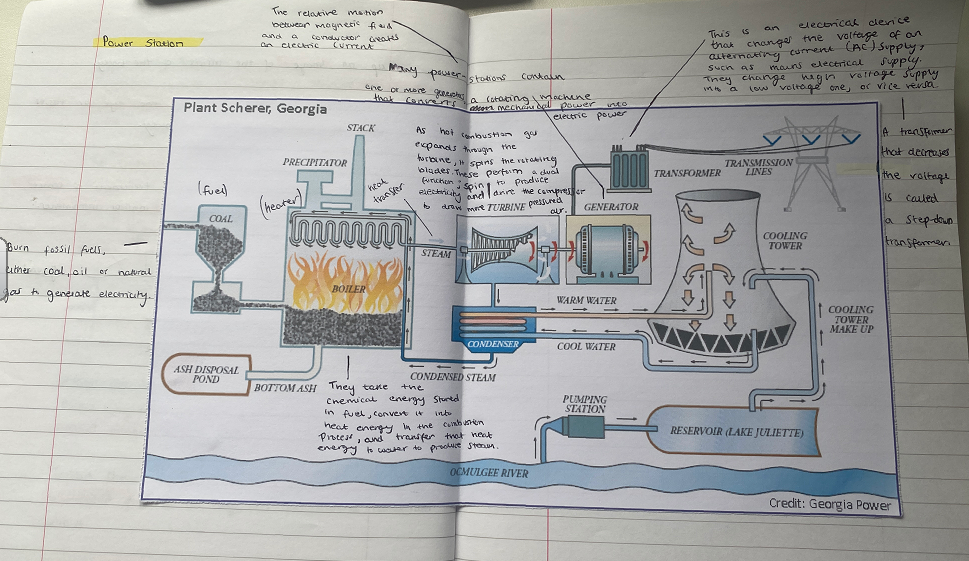 Power Station
The relative motion
between magnetic field
and a conductor creats
an electric current
Many power stations contain
one or more generators, a rotating machine
that converts mechanical power into
electric power
This is an electrical device
that changes the voltage of an
alternating current (AC) supply,
such as mains electrical supply.
They change high voltage supply
into a low voltage one, or vice versa.
A transformer
that decreases
the voltage
is called
a step-down
transformer
Plant Scherer, Georgia
STACK
PRECIPITATOR
As hot combustion gas
expands through the
turbine, it spins the rotating
blades. These perform a dual
function: spin to produce
electricity and drive the compressor
to draw more pressured
air.
TURBINE
GENERATOR
TRANSFORMER
TRANSMISSION
LINES
(fuel)
COAL
(heater)
heat
transfer
STEAM
BOILER
COOLING
TOWER
Burn fossil fuels,
either coal, oil or natural
gas to generate electricity.
WARM WATER
CONDENSER
COOL WATER
COOLING
TOWER
MAKE UP
CONDENSED STEAM
ASH DISPOSAL
POND
BOTTOM ASH
They take the
chemical energy stored
in fuel, convert it into
heat energy in the combustion
process, and transfer that heat
energy to water to produce steam.
PUMPING
STATION
RESERVOIR (LAKE JULIETTE)
OCMULGEE RIVER
Credit: Georgia Power